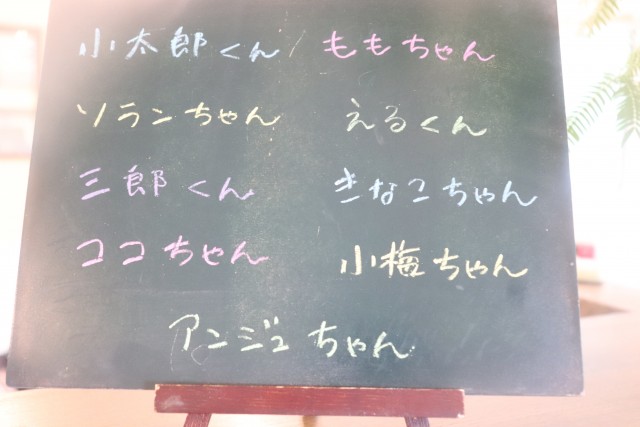 小太郎くん / ももちゃん
ソランちゃん えるくん
三郎くん きなこちゃん
ココちゃん 小梅ちゃん
アンジュちゃん